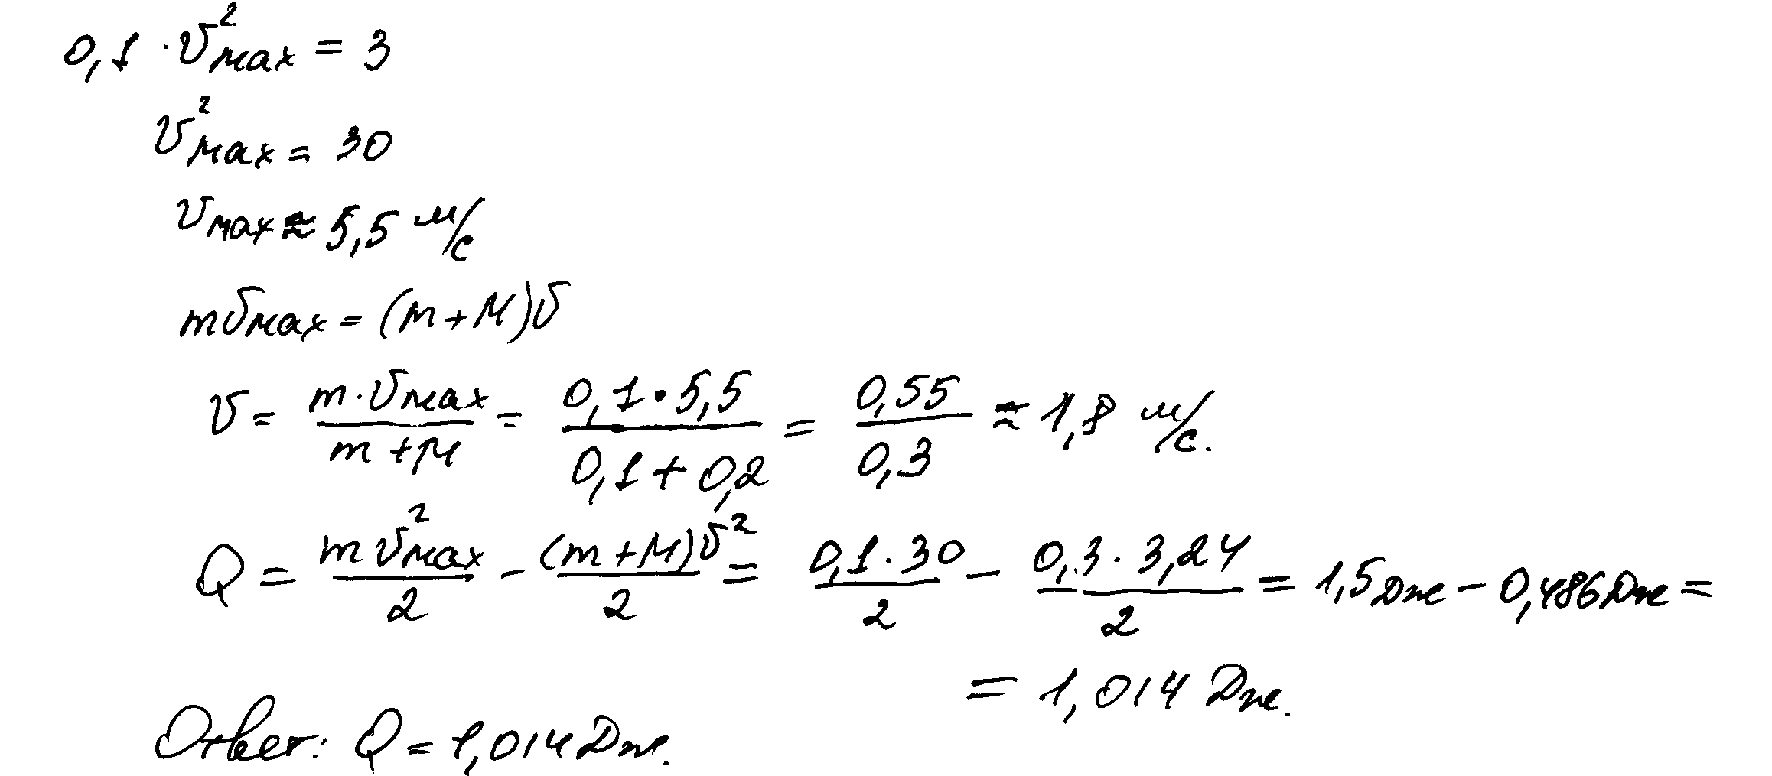 0,1 · υ²max = 3
υ²max = 30
υmax ≈ 5,5 м/с
mυmax = (m+M)υ
υ = m·υmax/m+M = 0,1·5,5/0,1+0,2 = 0,55/0,3 ≈ 1,8 м/с.
Q = mυ²max/2 - (m+M)υ²/2 = 0,1·30/2 - 0,3·3,24/2 = 1,5Дж - 0,486Дж =
= 1,014 Дж.
Ответ: Q = 1,014 Дж.